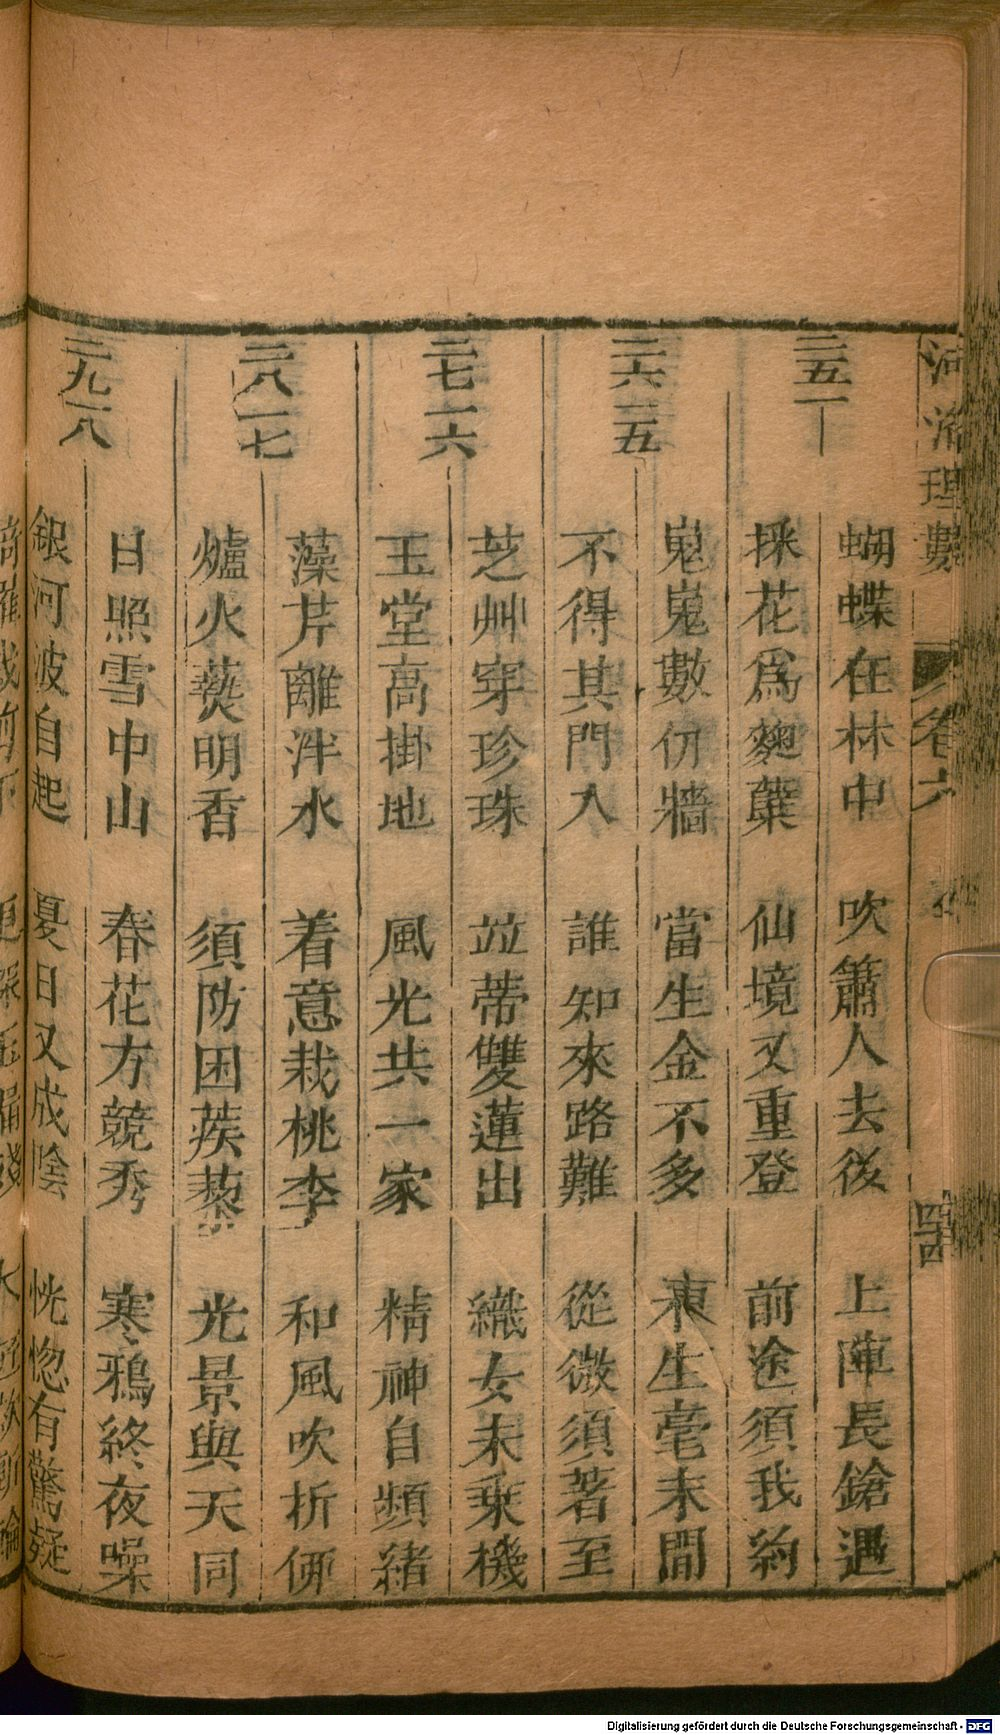 河洛理數
卷六
四
二五一一
蝴蝶在林中 吹簫人去後 上陣長鎗遇
採花爲麴糵 仙境又重登 前途須我約
二六二五
嵬嵬數仞牆 當生金不多 東生毫末間
不得其門入 誰知來路難 從微須著至
二七一六
芝艸穿珍珠 竝蒂雙蓮出 織女未乘機
玉堂高掛地 風光共一家 精神自頻緒
二八一七
藻芹離泮水 着意栽桃李 和風吹折
爐火爇明香 須防困蒺藜 光景與天同
二九一八
日照雪中山 春花方競秀 寒鴉終夜噪
銀河波自起 夏日又成陰 恍惚有驚疑
Digitalisierung gefördert durch die Deutsche Forschungsgemeinschaft - DFG